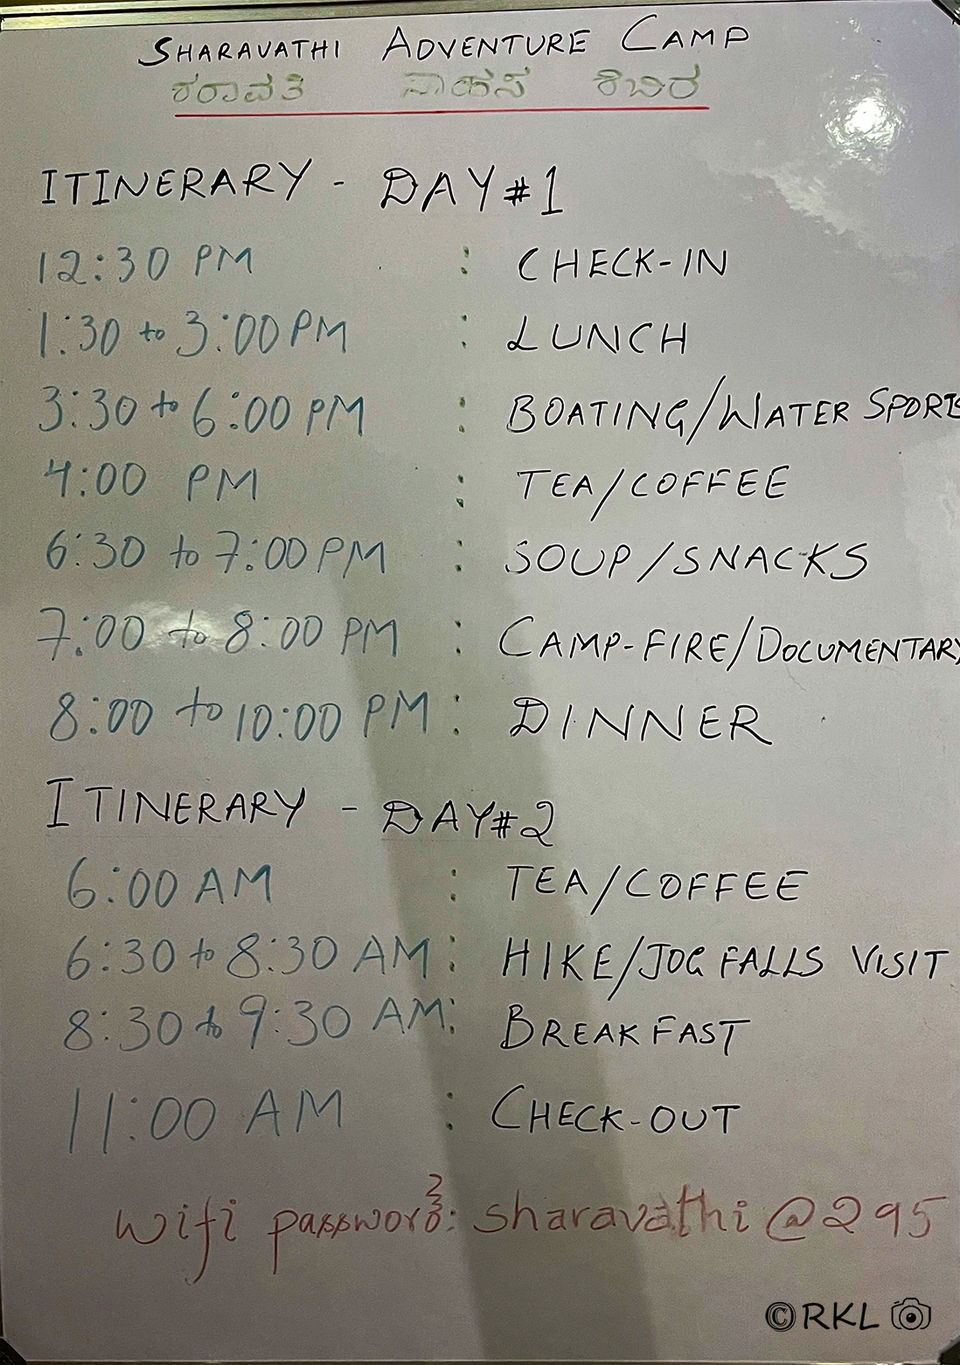 SHARAVATHI ADVENTURE CAMP
ಶರಾವತಿ ಸಾಹಸ ಶಿಬಿರ
ITINERARY - DAY #1
12:30 PM : CHECK-IN
1:30 to 3:00 PM : LUNCH
3:30 to 6:00 PM : BOATING/WATER SPORTS
4:00 PM : TEA/COFFEE
6:30 to 7:00 PM : SOUP/SNACKS
7:00 to 8:00 PM : CAMP-FIRE/DOCUMENTARY
8:00 to 10:00 PM : DINNER
ITINERARY - DAY #2
6:00 AM : TEA/COFFEE
6:30 to 8:30 AM : HIKE/JOG FALLS VISIT
8:30 to 9:30 AM : BREAKFAST
11:00 AM : CHECK-OUT
wifi password: sharavathi@295
©RKL